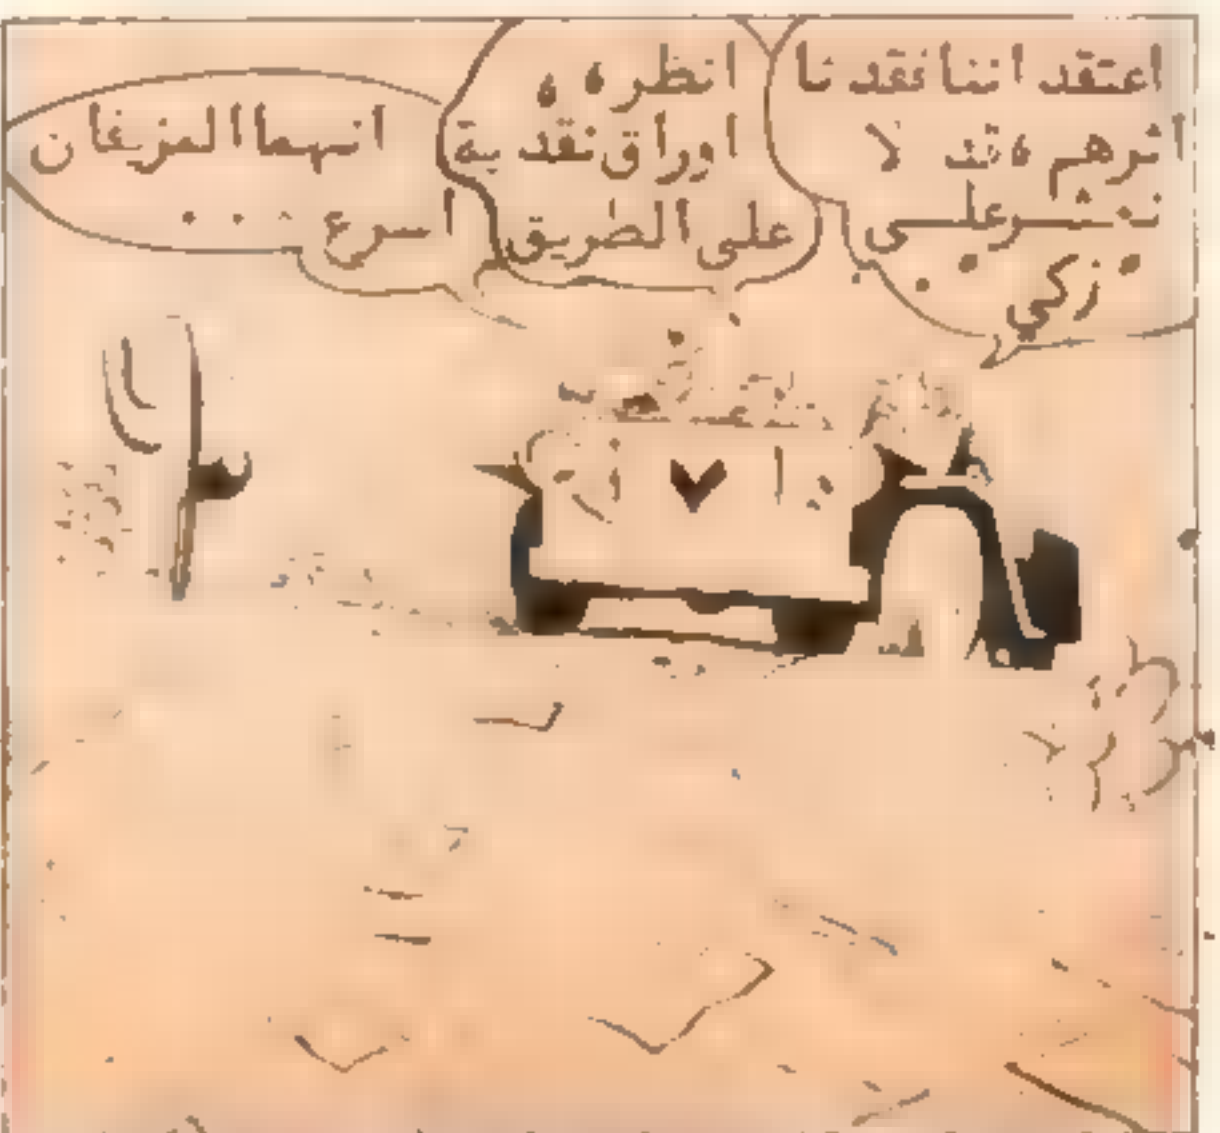 اعتقد اننا فقدنا
اثرهم ، قد لا
نعثر على
زكي . .
انظر ، ،
اوراق نقدية
على الطريق
انهما المزيفان
اسرع . . .